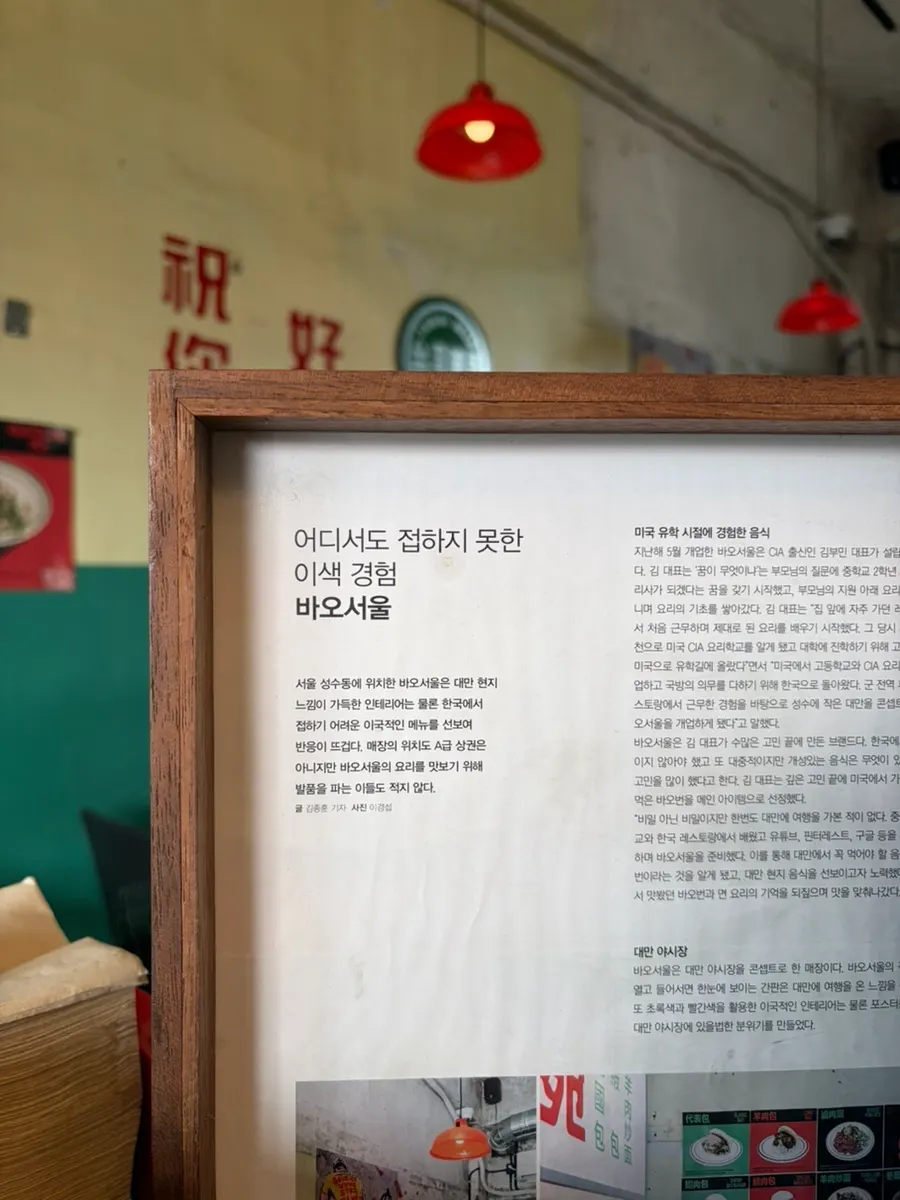 祝
你
好
어디서도 접하지 못한
이색 경험
바오서울
서울 성수동에 위치한 바오서울은 대만 현지
느낌이 가득한 인테리어는 물론 한국에서
접하기 어려운 이국적인 메뉴를 선보여
반응이 뜨겁다. 매장의 위치도 A급 상권은
아니지만 바오서울의 요리를 맛보기 위해
발품을 파는 이들도 적지 않다.
글 김종훈 기자 사진 이경섭
미국 유학 시절에 경험한 음식
지난해 5월 개업한 바오서울은 CIA 출신인 김부민 대표가 설립
다. 김 대표는 '꿈이 무엇이냐'는 부모님의 질문에 중학교 2학년
리사가 되겠다는 꿈을 갖기 시작했고, 부모님의 지원 아래 요리
니며 요리의 기초를 쌓아갔다. 김 대표는 "집 앞에 자주 가던 레
서 처음 근무하며 제대로 된 요리를 배우기 시작했다. 그 당시
천으로 미국 CIA 요리학교를 알게 됐고 대학에 진학하기 위해 고
미국으로 유학길에 올랐다"면서 "미국에서 고등학교와 CIA 요리
업하고 국방의 의무를 다하기 위해 한국으로 돌아왔다. 군 전역
스토랑에서 근무한 경험을 바탕으로 성수에 작은 대만을 콘셉트
오서울을 개업하게 됐다"고 말했다.
바오서울은 김 대표가 수많은 고민 끝에 만든 브랜드다. 한국에
이지 않아야 했고 또 대중적이지만 개성있는 음식은 무엇이 있
고민을 많이 했다고 한다. 김 대표는 깊은 고민 끝에 미국에서 가
먹은 바오번을 메인 아이템으로 선정했다.
"비밀 아닌 비밀이지만 한번도 대만에 여행을 가본 적이 없다. 중
교와 한국 레스토랑에서 배웠고 유튜브, 핀터레스트, 구글 등을
하며 바오서울을 준비했다. 이를 통해 대만에서 꼭 먹어야 할 음
번이라는 것을 알게 됐고, 대만 현지 음식을 선보이고자 노력했
서 맛봤던 바오번과 면 요리의 기억을 되짚으며 맛을 맞춰나갔다.
대만 야시장
바오서울은 대만 야시장을 콘셉트로 한 매장이다. 바오서울의
열고 들어서면 한눈에 보이는 간판은 대만에 여행을 온 느낌을
또 초록색과 빨간색을 활용한 이국적인 인테리어는 물론 포스터
대만 야시장에 있을법한 분위기를 만들었다.
代表包
羊肉包